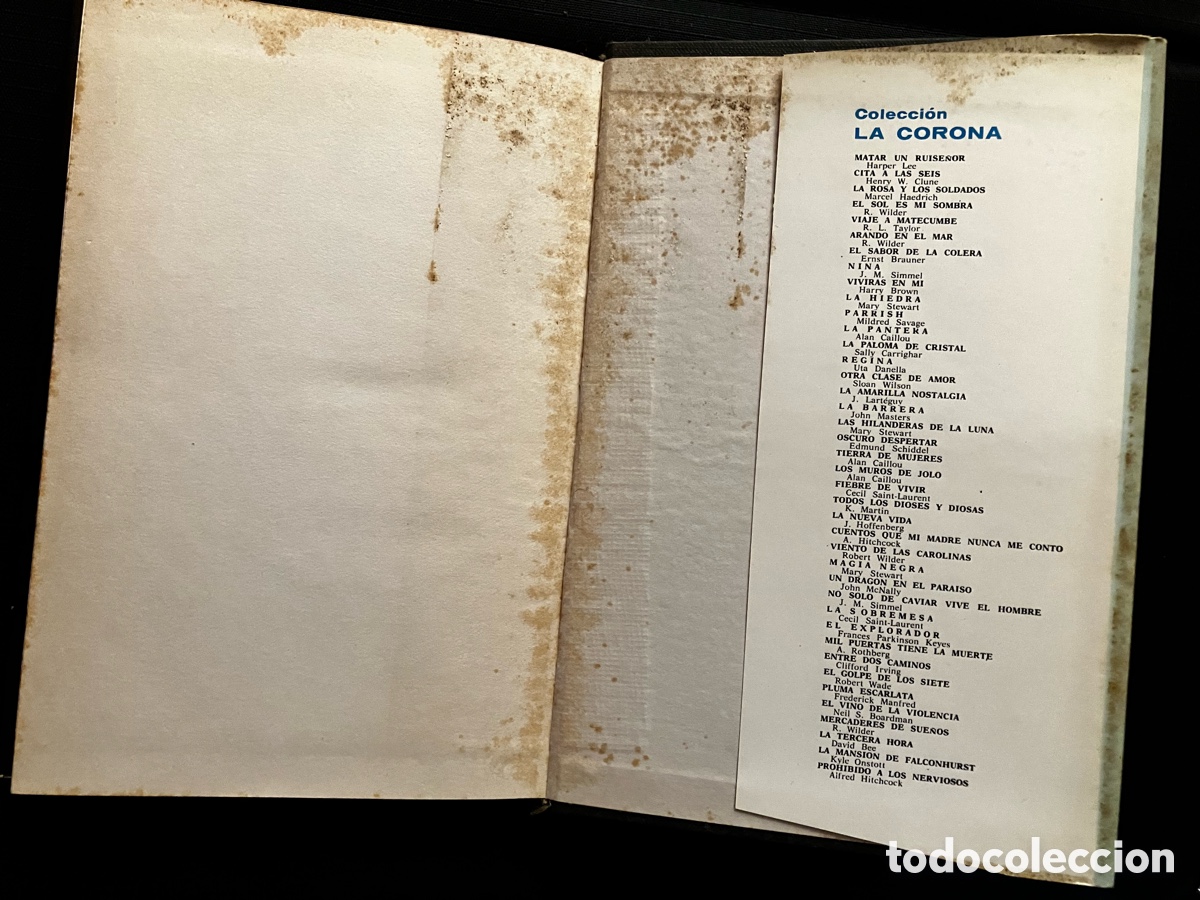 Colección
LA CORONA
MATAR UN RUISEÑOR
Harper Lee
CITA A LAS SEIS
Henry W. Clune
LA ROSA Y LOS SOLDADOS
Marcel Haedrich
EL SOL ES MI SOMBRA
R. Wilder
VIAJE A MATECUMBE
R. L. Taylor
ARANDO EN EL MAR
R. Wilder
EL SABOR DE LA COLERA
Ernst Brauner
NINA
J. M. Simmel
VIVIRAS EN MI
Harry Brown
LA HIEDRA
Mary Stewart
PARRISH
Mildred Savage
LA PANTERA
Alan Caillou
LA PALOMA DE CRISTAL
Sally Carrighar
REGINA
Uta Danella
OTRA CLASE DE AMOR
Sloan Wilson
LA AMARILLA NOSTALGIA
J. Lartéguy
LA BARRERA
John Masters
LAS HILANDERAS DE LA LUNA
Mary Stewart
OSCURO DESPERTAR
Edmund Schiddel
TIERRA DE MUJERES
Alan Caillou
LOS MUROS DE JOLO
Alan Caillou
FIEBRE DE VIVIR
Cecil Saint-Laurent
TODOS LOS DIOSES Y DIOSAS
K. Martin
LA NUEVA VIDA
J. Hoffenberg
CUENTOS QUE MI MADRE NUNCA ME CONTO
A. Hitchcock
VIENTO DE LAS CAROLINAS
Robert Wilder
MAGIA NEGRA
Mary Stewart
UN DRAGON EN EL PARAISO
John McNally
NO SOLO DE CAVIAR VIVE EL HOMBRE
J. M. Simmel
LA SOBREMESA
Cecil Saint-Laurent
EL EXPLORADOR
Frances Parkinson Keyes
MIL PUERTAS TIENE LA MUERTE
A. Rothberg
ENTRE DOS CAMINOS
Clifford Irving
EL GOLPE DE LOS SIETE
Robert Wade
PLUMA ESCARLATA
Frederick Manfred
EL VINO DE LA VIOLENCIA
Neil S. Boardman
MERCADERES DE SUEÑOS
R. Wilder
LA TERCERA HORA
David Bee
LA MANSION DE FALCONHURST
Kyle Onstott
PROHIBIDO A LOS NERVIOSOS
Alfred Hitchcock
todocoleccion